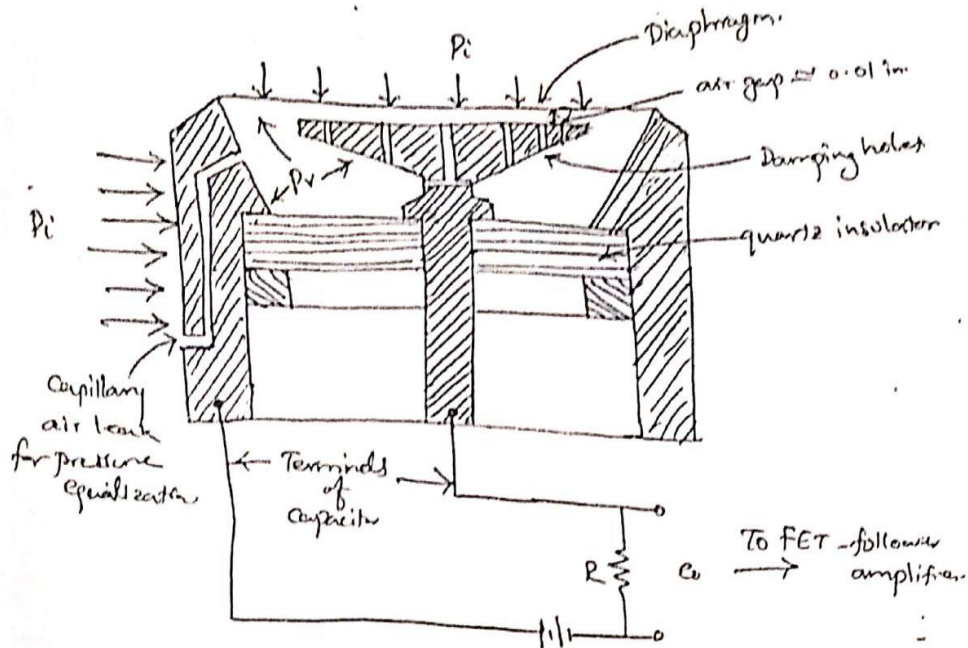 Pi
Diaphragm.
air gap ≈ 0.01 in.
Damping holes
Pv
Pi
quartz insulator
Capillary
air leak
for pressure
equalization
Terminals
of
Capacitor
R
e₀
To FET-follower
amplifier.